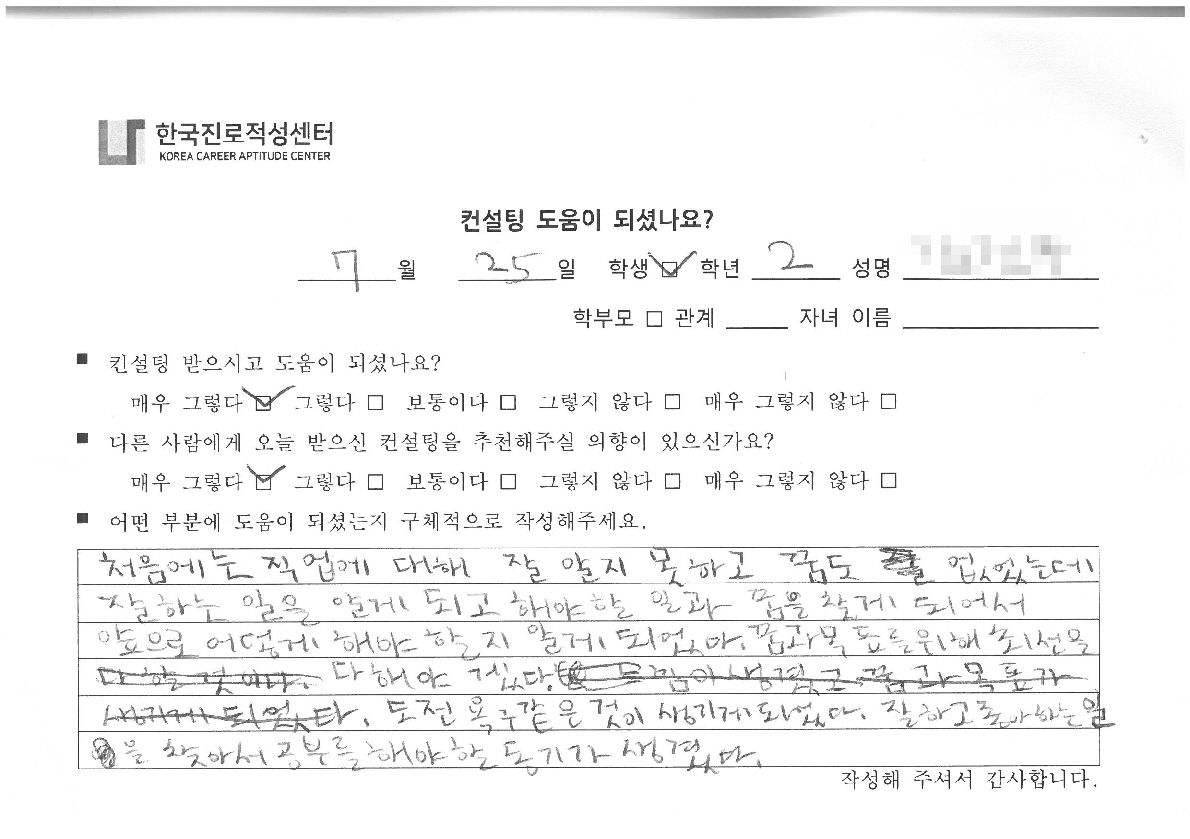 한국진로적성센터
KOREA CAREER APTITUDE CENTER
컨설팅 도움이 되셨나요?
7 월 25 일 학생 ☑ 학년 2 성명
학부모 □ 관계 자녀 이름
■ 컨설팅 받으시고 도움이 되셨나요?
매우 그렇다 ☑ 그렇다 □ 보통이다 □ 그렇지 않다 □ 매우 그렇지 않다 □
■ 다른 사람에게 오늘 받으신 컨설팅을 추천해주실 의향이 있으신가요?
매우 그렇다 ☑ 그렇다 □ 보통이다 □ 그렇지 않다 □ 매우 그렇지 않다 □
■ 어떤 부분에 도움이 되셨는지 구체적으로 작성해주세요.
처음에는 직업에 대해 잘 알지 못하고 꿈도 없었는데
잘하는 일을 알게 되고 해야할 일과 꿈을 찾게 되어서
앞으로 어떻게 해야 할지 알게 되었다. 꿈과 목표를 위해 최선을
다 할 것 이다. 다 해야 겠다. 느낌이 생겼고 꿈과 목표가
생기게 되었다. 도전 욕구같은 것이 생기게 되었다. 잘하고 좋아하는 일
을 찾아서 공부를 해야할 동기가 생겼다.
작성해 주셔서 감사합니다.